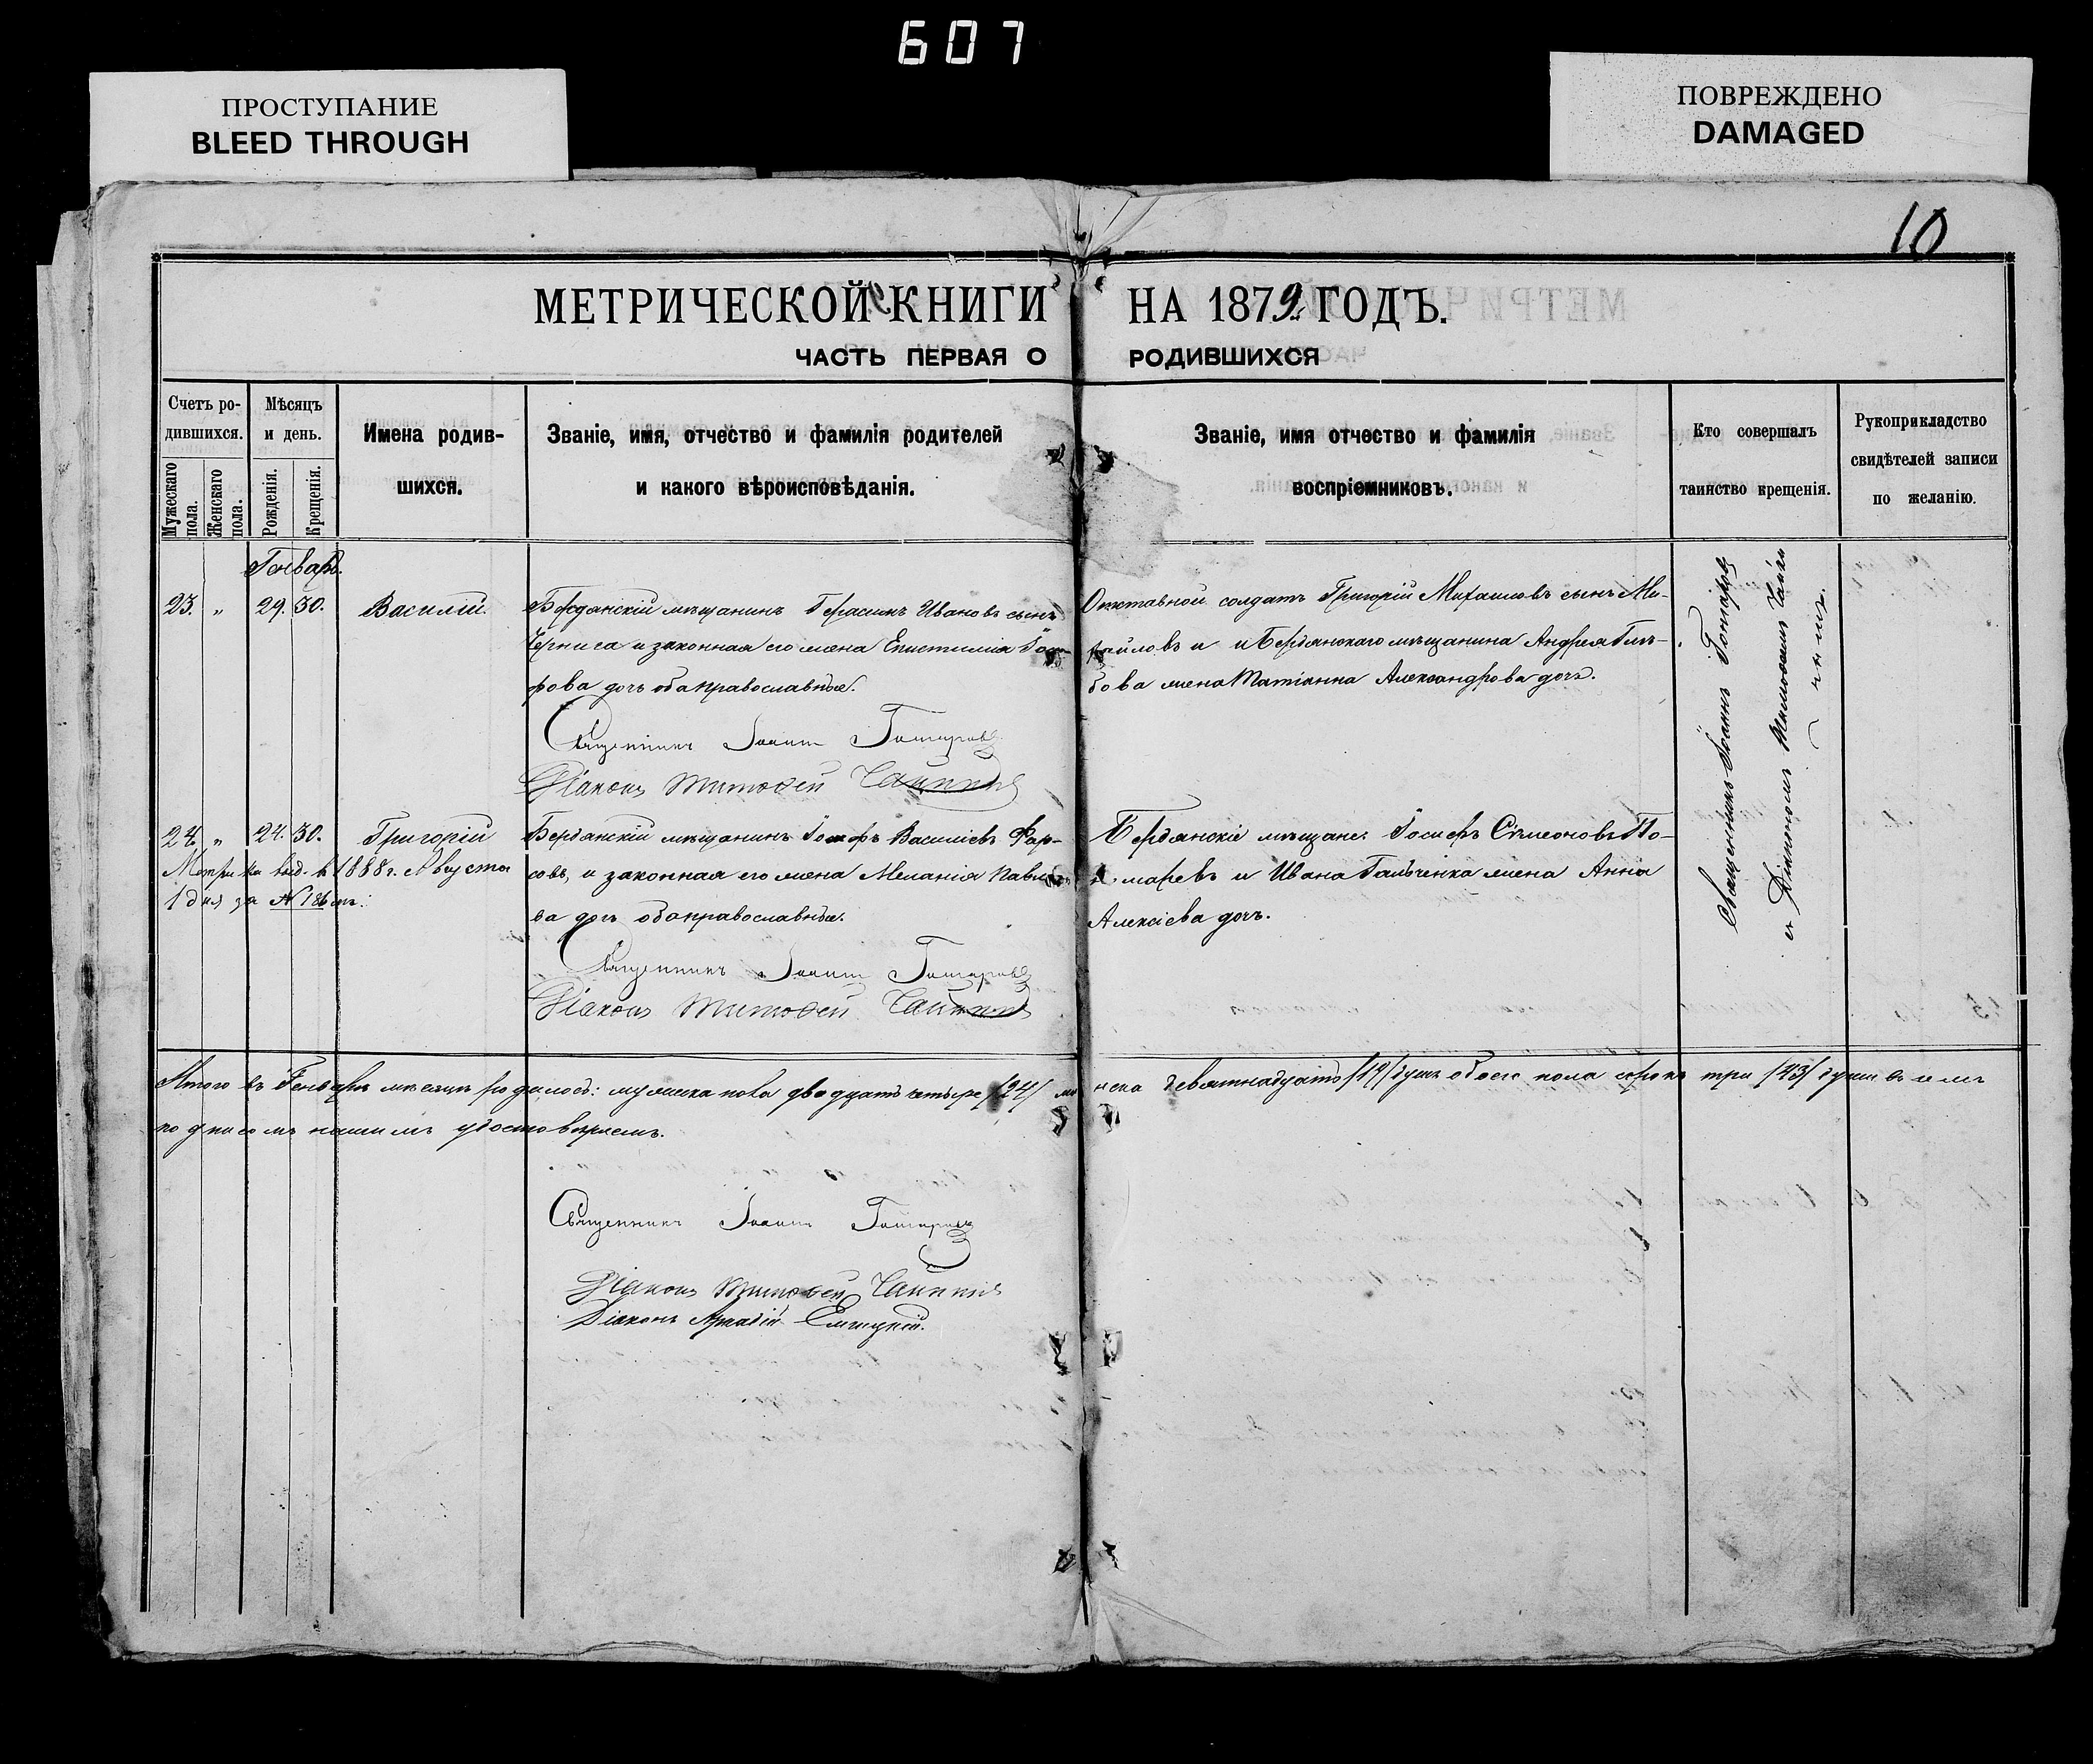 607
ПРОСТУПАНИЕ
BLEED THROUGH
ПОВРЕЖДЕНО
DAMAGED
10
МЕТРИЧЕСКОЙ КНИГИ НА 1879 ГОДЪ.
ЧАСТЬ ПЕРВАЯ О РОДИВШИХСЯ
Счетъ ро-
дившихся.
Мужескаго пола.
Женскаго пола.
Мѣсяцъ
и день.
Рожденія.
Крещенія.
Имена родив-
шихся.
Званіе, имя, отчество и фамилія родителей
и какого вѣроисповѣданія.
Званіе, имя отчество и фамилія
воспріемниковъ.
Кто совершалъ
таинство крещенія.
Рукоприкладство
свидѣтелей записи
по желанію.
Генварь.
23. „ 29. 30. Василій.
Бердянскій мѣщанинъ Герасимъ Ивановъ сынъ
и законная его жена Епистимія
рова дочь оба православные.
Священникъ Іоаннъ Гончаровъ
Діаконъ Тимофей
Отставной солдатъ Григорій Михаиловъ сынъ Ми-
хайловъ и Бердянскаго мѣщанина Андрея Глѣ-
бова жена Татіанна Александрова дочь.
24. „ 24. 30. Григорій
Метрика выд. в 1888 г. Августа
1 дня за № 186
Бердянскій мѣщанинъ Іосифъ Василіевъ Фар-
совъ, и законная его жена Меланія Павло-
ва дочь оба православные.
Священникъ Іоаннъ Гончаровъ
Діаконъ Тимофей
Бердянскіе мѣщане: Іосифъ Сѵмеоновъ По-
номаревъ и Ивана Гальченка жена Анна
Алексіева дочь.
Священникъ Іоаннъ Гончаровъ
съ Діакономъ Тимофеемъ
Итого въ Генварѣ мѣсяцѣ родилось: мужеска пола двадцать четыре /24/ женска девятнадцать /19/ душъ обоего пола сорокъ три /43/ души въ чемъ
подписомъ нашимъ удостовѣряемъ.
Священникъ Іоаннъ Гончаровъ
Діаконъ Тимофей
Діаконъ